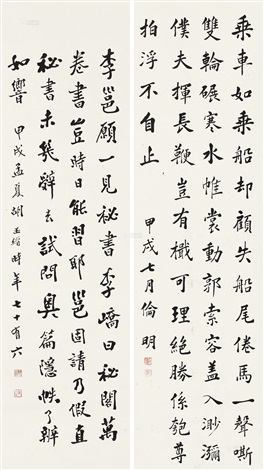 乘車如乘船却顧失船尾倦馬一聲嘶
雙輪碾寒水帷裳動郭索容蓋入渺瀰
僕夫揮長鞭豈有檝可理絶勝係匏尊
拍浮不自止
甲戌七月倫明
李邕願一見秘書李嶠曰秘閣萬
卷書豈時日能習耶邕固請乃假直
秘書未幾辭去試問奧篇隱帙了辯
如響
甲戌孟夏胡玉縉時年七十有六